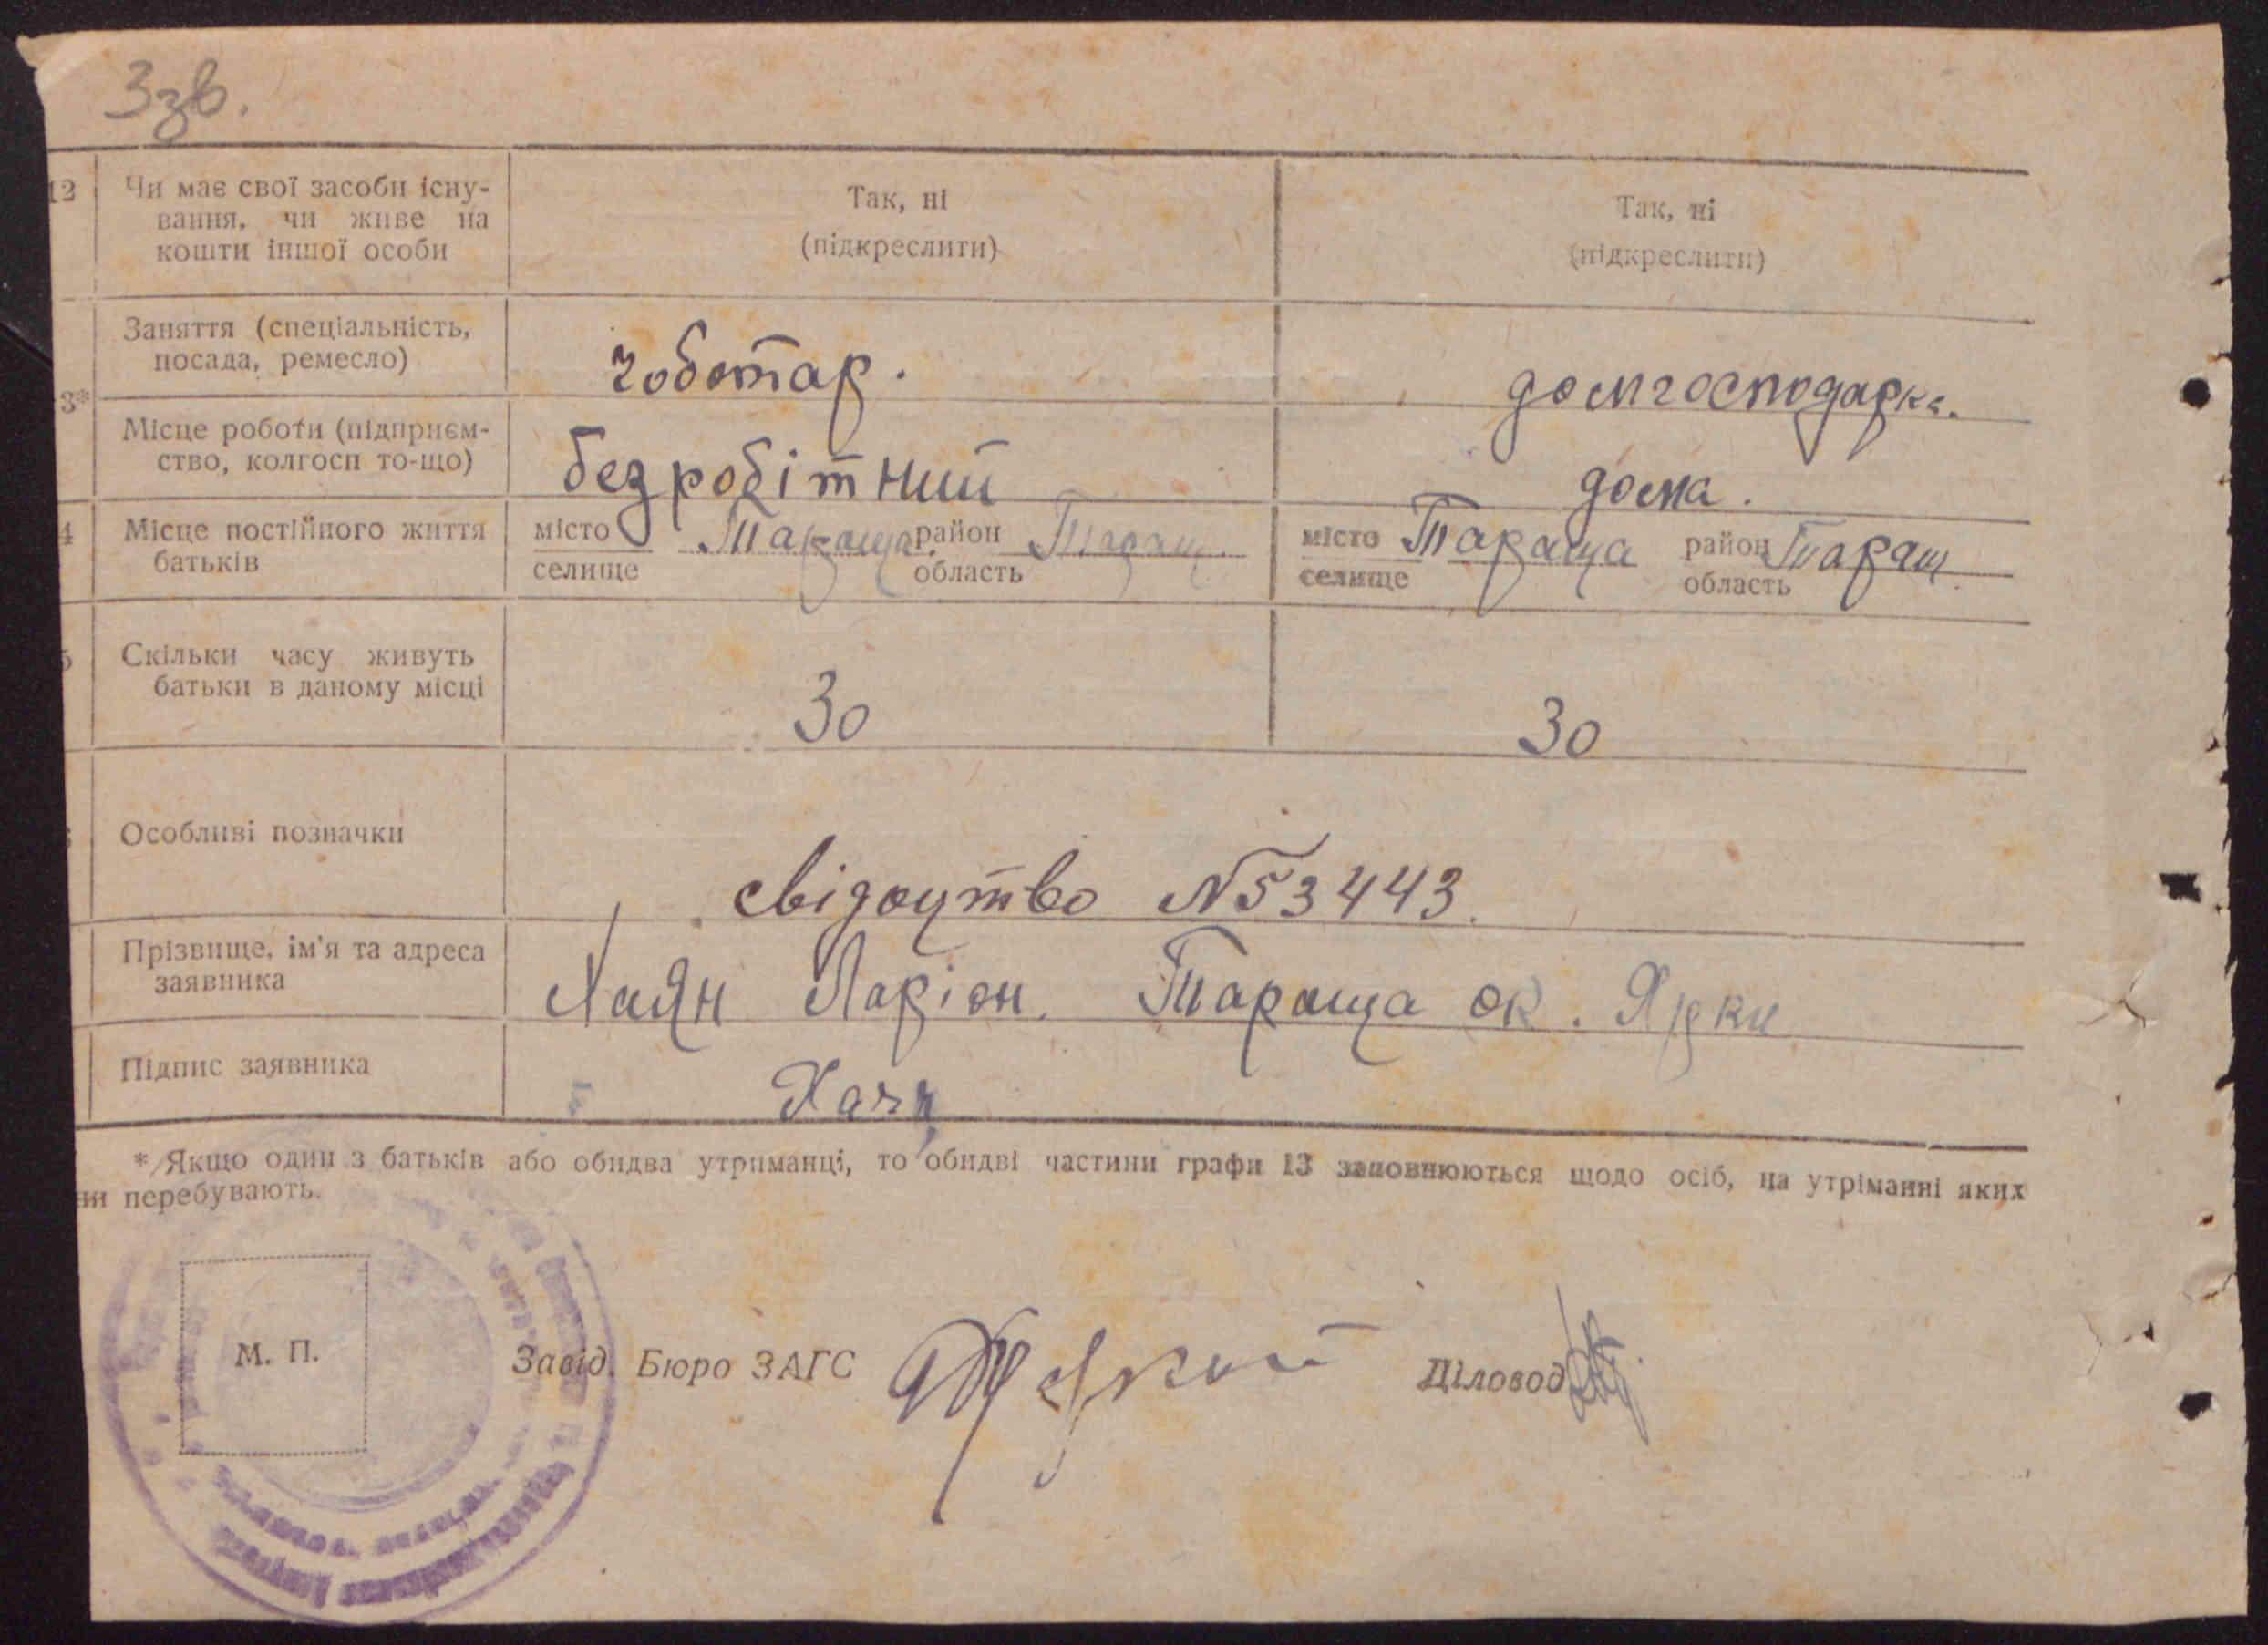 3зв.
12 Чи має свої засоби існу-
вання, чи живе на
кошти іншої особи
Так, ні
(підкреслити)
Так, ні
(підкреслити)
3*
Заняття (спеціальність,
посада, ремесло)
чоботар.
домгосподарка.
Місце роботи (підприєм-
ство, колгосп то-що)
безробітний
дома.
4 Місце постійного життя
батьків
місто Тараща район Таращ.
селище область
місто Тараща район Таращ.
селище область
5 Скільки часу живуть
батьки в даному місці
30
30
Особливі позначки
свідоцтво №53443.
Прізвище, ім'я та адреса
заявника
Хаян Ларіон. Тараща ок. Ярки
Підпис заявника
Хаян
* Якщо один з батьків або обидва утриманці, то обидві частини графи 13 заповнюються щодо осіб, на утріманні яких
ни перебувають.
М. П.
Завід. Бюро ЗАГС
Діловод